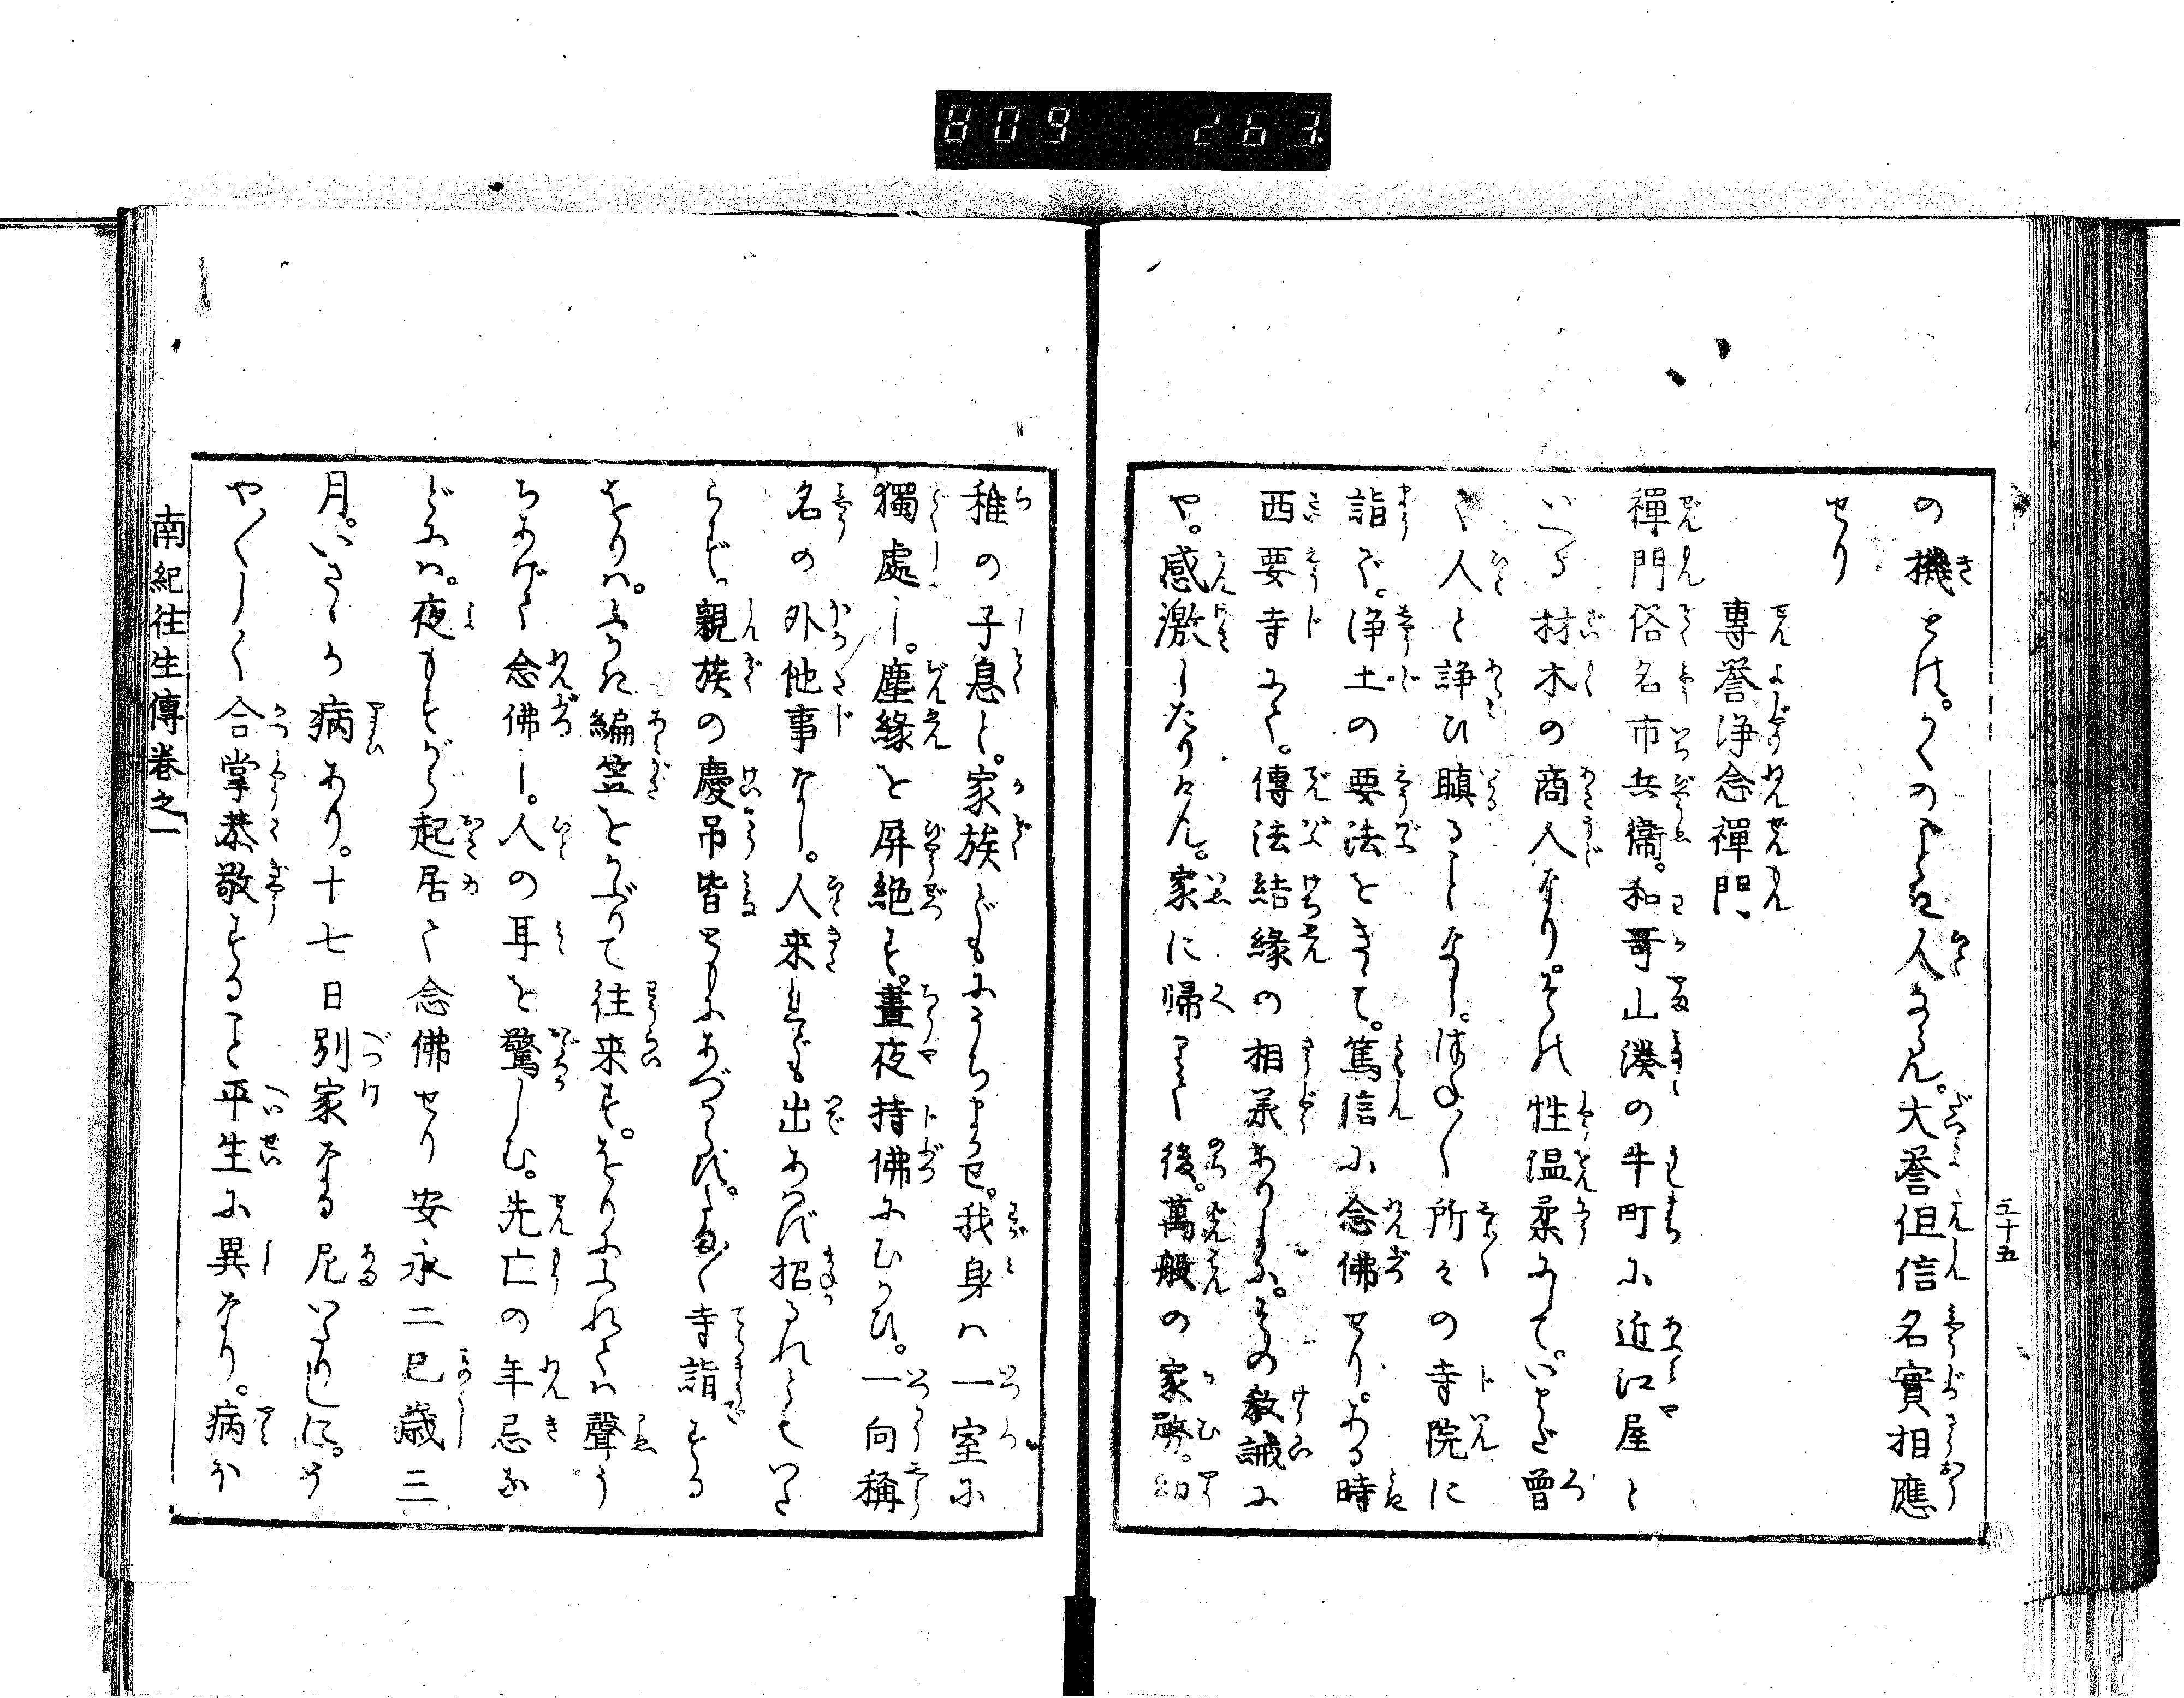 809 263
三十五
の機とは。かくのごとき人ならん。大誉但信名實相應
せり
專誉浄念禪門
禪門俗名市兵衞。和哥山湊の牛町に近江屋と
いへる材木の商人なり。それ性温柔にして。いまだ曾
て人と諍ひ瞋ることなし。つねに〱所々の寺院に
詣で。浄土の要法をきゝて。篤信に念佛せり。ある時
西要寺にて。傳法結縁の相承ありしに。その教誡に
や。感激したりけん。家に帰りて後。萬般の家務。幼
稚の子息と。家族どもにうちまかせ。我身は一室に
獨處し。塵縁を屏絶す。晝夜持佛にむかひ。一向稱
名の外他事なし。人来れども出あはず招るれとてもいた
らず。親族の慶吊皆ともにあづからず。たま〱寺詣する
をりは。ふかき編笠をかぶりて往来す。をりにふれては聲う
ちあげて念佛し。人の耳を驚しむ。先亡の年忌な
どには。夜もすがら起居て念佛せり安永二巳歳三
月。いさゝか病あり。十七日別家なる尼いたりしに。う
や〱しく合掌恭敬すること平生に異なり。病か
南紀往生傳巻之一